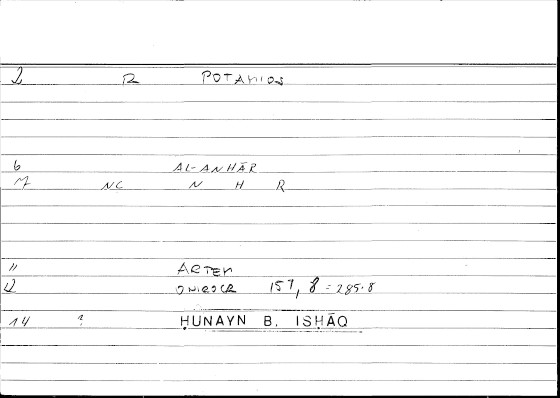 2 R POTAMIOS
6 AL-ANHĀR
7 NC N H R
11 ARTEM
12 ONIROCR 157, 8 = 285.8
14 ? ḤUNAYN B. ISḤĀQ